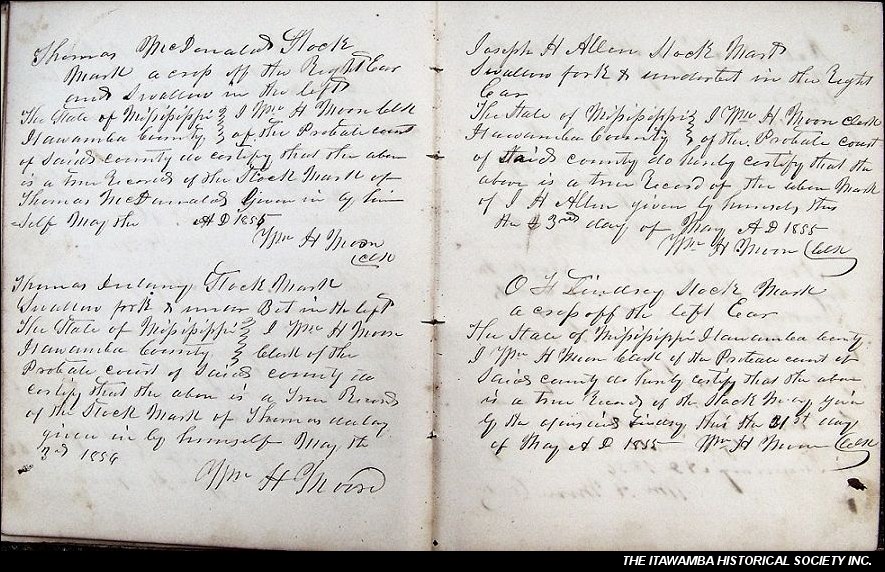 Thomas McDonald Stock
Mark a crop off the Right Ear
and Swallow in the left
The State of Mississippi } I Wm H Moon Clk
Itawamba County } of the Probate court
of Said county do certify that the above
is a true Records of the Stock Mark of
Thomas McDonald Given in by him
self May the A D 1855
Wm H Moon
Clk
Thomas Stock Mark
Swallow fork & under Bit in the left
The State of Mississippi } I Wm H Moon
Itawamba County } Clerk of the
Probate court of Said county do
certify that the above is a True Records
of the Stock Mark of Thomas
given in by himself May the
3rd
Wm H Moon
Joseph H Allen Stock Mark
Swallow fork & underbit in the Right
Ear
The State of Mississippi } I Wm H Moon Clerk
Itawamba County } of the Probate court
of Said county do herby certify that the
above is a true Record of the above Mark
of J H Allen given by himself this
the 3rd day of May A D 1855
Wm H Moon Clk
O F Lindsey Stock Mark
a crop off the left Ear
The State of Mississippi Itawamba County
I Wm H Moon Clerk of the Probate court of
Said county do herby certify that the above
is a true Records of the Stock Mark given
by the Lindsey this the 31st day
of May A D 1855 Wm H Moon Clk
THE ITAWAMBA HISTORICAL SOCIETY INC.